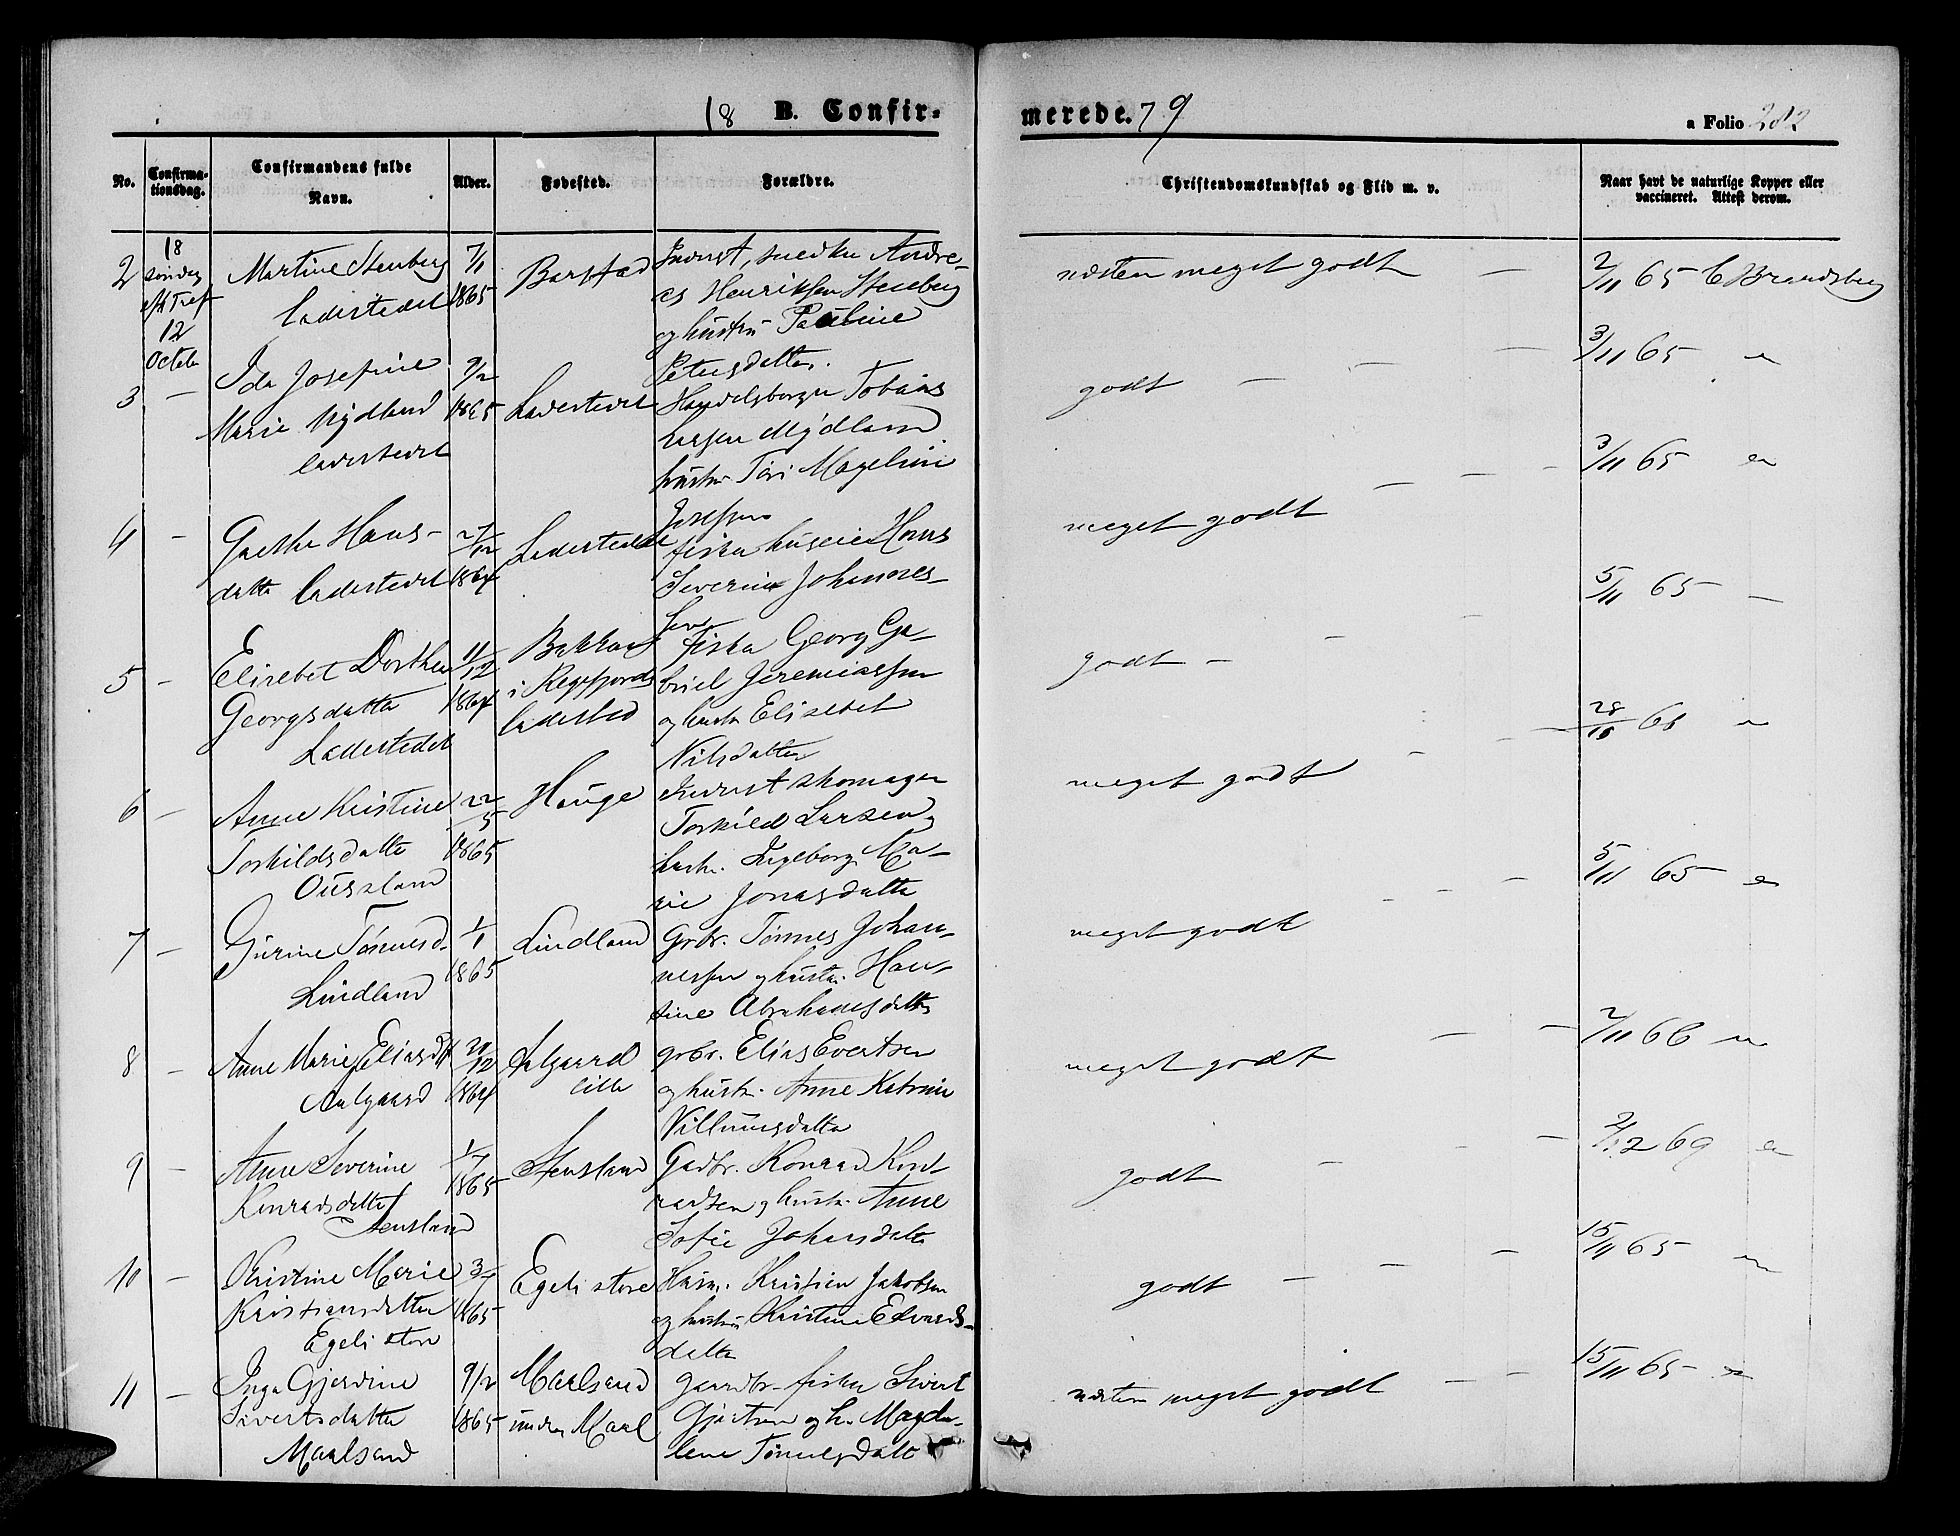 18 B. Confir-
merede. 79
a Folio 282
No.
Confirma-
tionsdag.
Confirmandens fulde
Navn.
Alder.
Fødested.
Forældre.
Christendomskundskab og Flid m. v.
Naar havt de naturlige Kopper eller
vaccineret. Attest derom.
2
18
søndag
eft Tref
12
Octobr
Martine Stenberg
Ladestedet
7/1
1865
Barstad
Inderst, snedker Andre-
as Henriksen Stenberg
og hustru Pauline
Petersdatter.
næsten meget godt —
2/11 65 C Brandsberg
3 —
Ida Josefine
Marie Mydland
ladestedet
9/2
1865
Ladestedet
Handelsborger Tobias
Larsen Mydland
hustr. Tori Magelini
Josefsen
godt — — —
3/11 65 "
4 —
Grethe Hans-
datter Ladestedet
27/12
1864
Ladestedet
fisker huseier Hans
Severin Johannes-
sen
meget godt — — —
3/11 65 "
5 —
Elisebet Dorthea
Georgsdatter
Ladestedet
11/12
1864
Bakkaa
i Regefjords
ladested
Fisker Georg Ga-
briel Jeremiassen
og hustr Elisebet
Nilsdatter
godt — —
5/11 65 —
6 —
Anne Kristine
Torkildsdatter
Ousland
22/5
1865
Hauge
Inderst skomager
Torkild Larsen og
hustr. Ingeborg Ma-
rie Jonasdatter
meget godt — — —
28/10 65 "
7 —
Gurine Tønnesd.
Lindland
1/1
1865
Lindland
Grbr. Tønnes Johan-
nessen og hustr. Han-
sine Abrahamsdatter
meget godt — —
5/11 65 "
8 —
Anne Marie Eliasdtr
Aalgaard
20/12
1864
Aalgaard
lille
grbr. Elias Evertsen
og hustr. Anne Katrine
Villumsdatter
meget godt — —
2/11 66 "
9 —
Anne Severine
Konradsdatter
Stensland
1/7
1865
Stensland
Gadbr. Konrad Kon-
radsen og hustr. Anne
Sofie Johansdatter
godt — — —
2/12 69 "
10 —
Kristine Marie
Kristiansdatter
Egeli store
3/7
1865
Egeli store
Husm. Kristian Jakobsen
og hustru Kristine Edvards-
datter
godt — — —
15/11 65 "
11 —
Inga Gjerdine
Sivertsdatter
Maalsand
9/2
1865
Maalsand
under Maal
gaardbr. fisker Sivert
Gjertsen og h. Magda-
lene Tønnesdatt
næsten meget godt — —
15/11 65 "